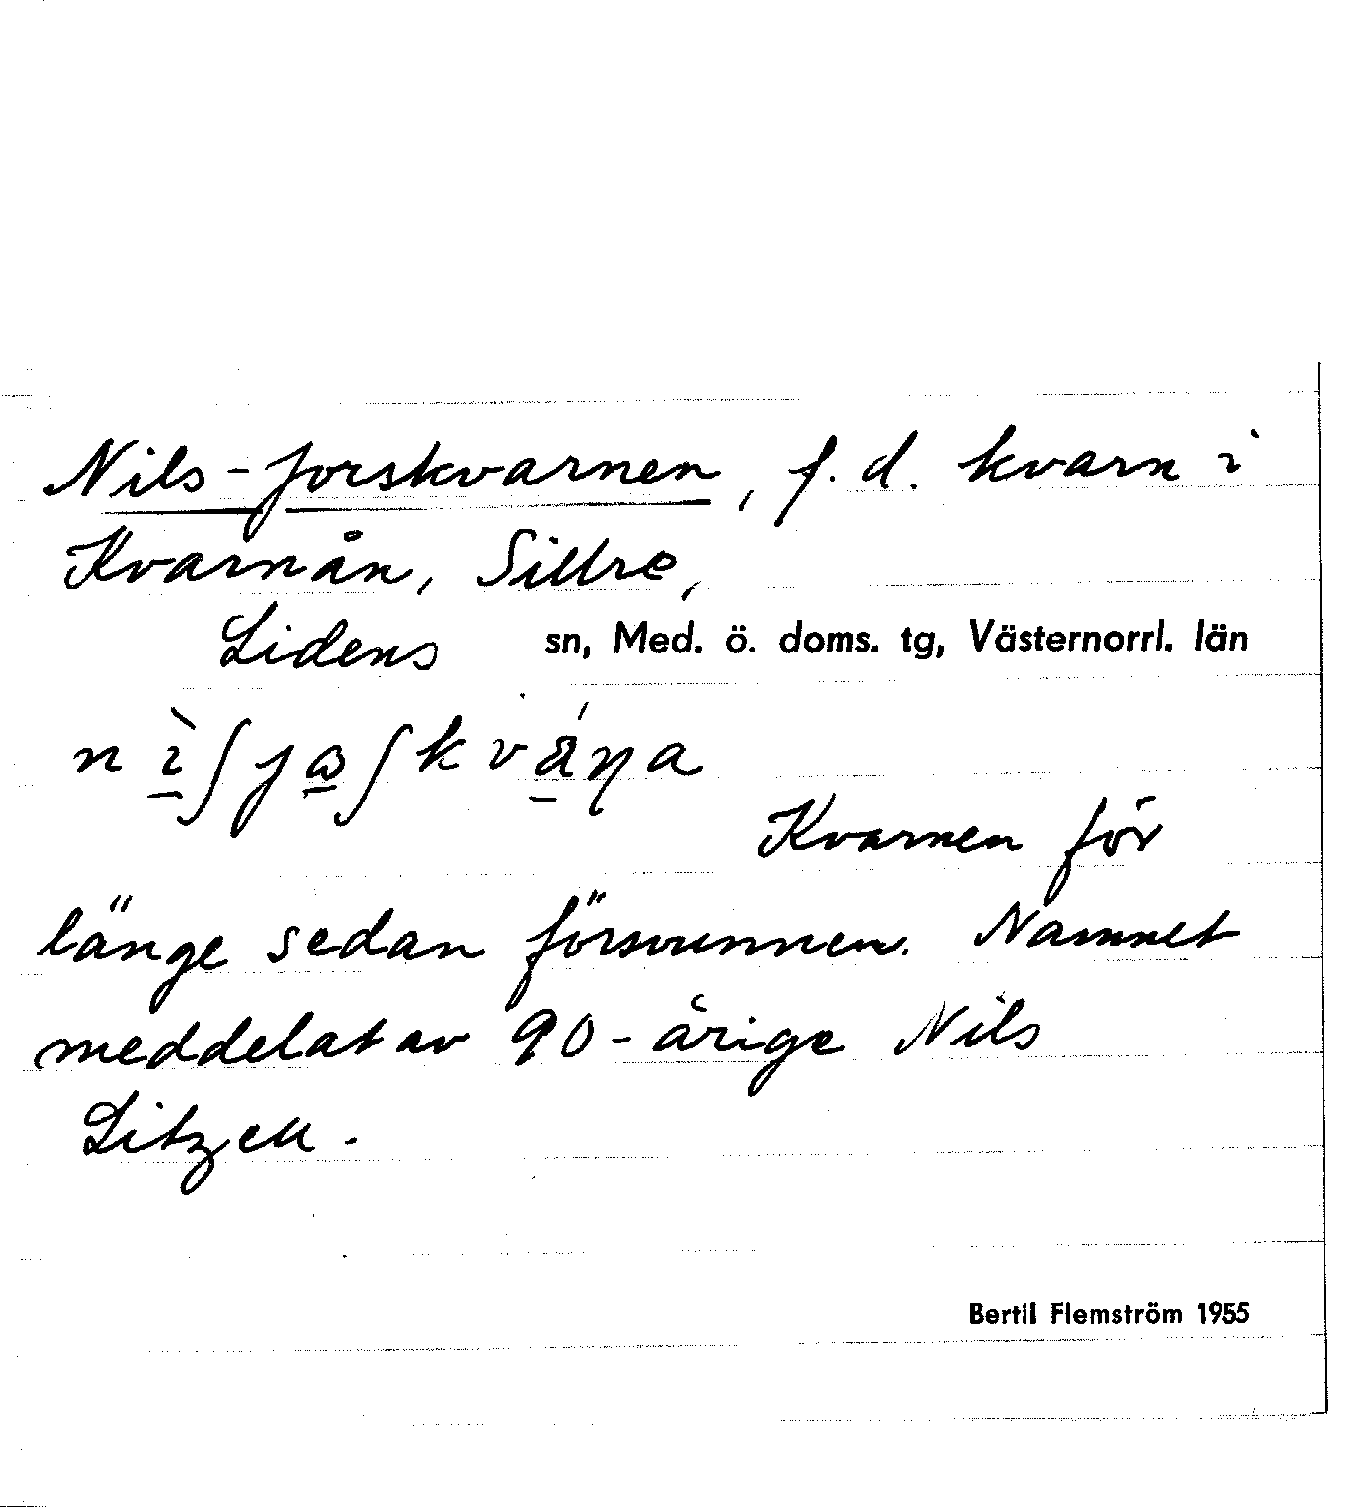 Nils-Jorskvarnen, f.d. kvarn i
Kvarnån, Sillre,
Lidens sn, Med. ö. doms. tg, Västernorrl. län
Kvarnen för
länge sedan försvunnen. Namnet
meddelat av 90-årige Nils
Litzell.
Bertil Flemström 1955